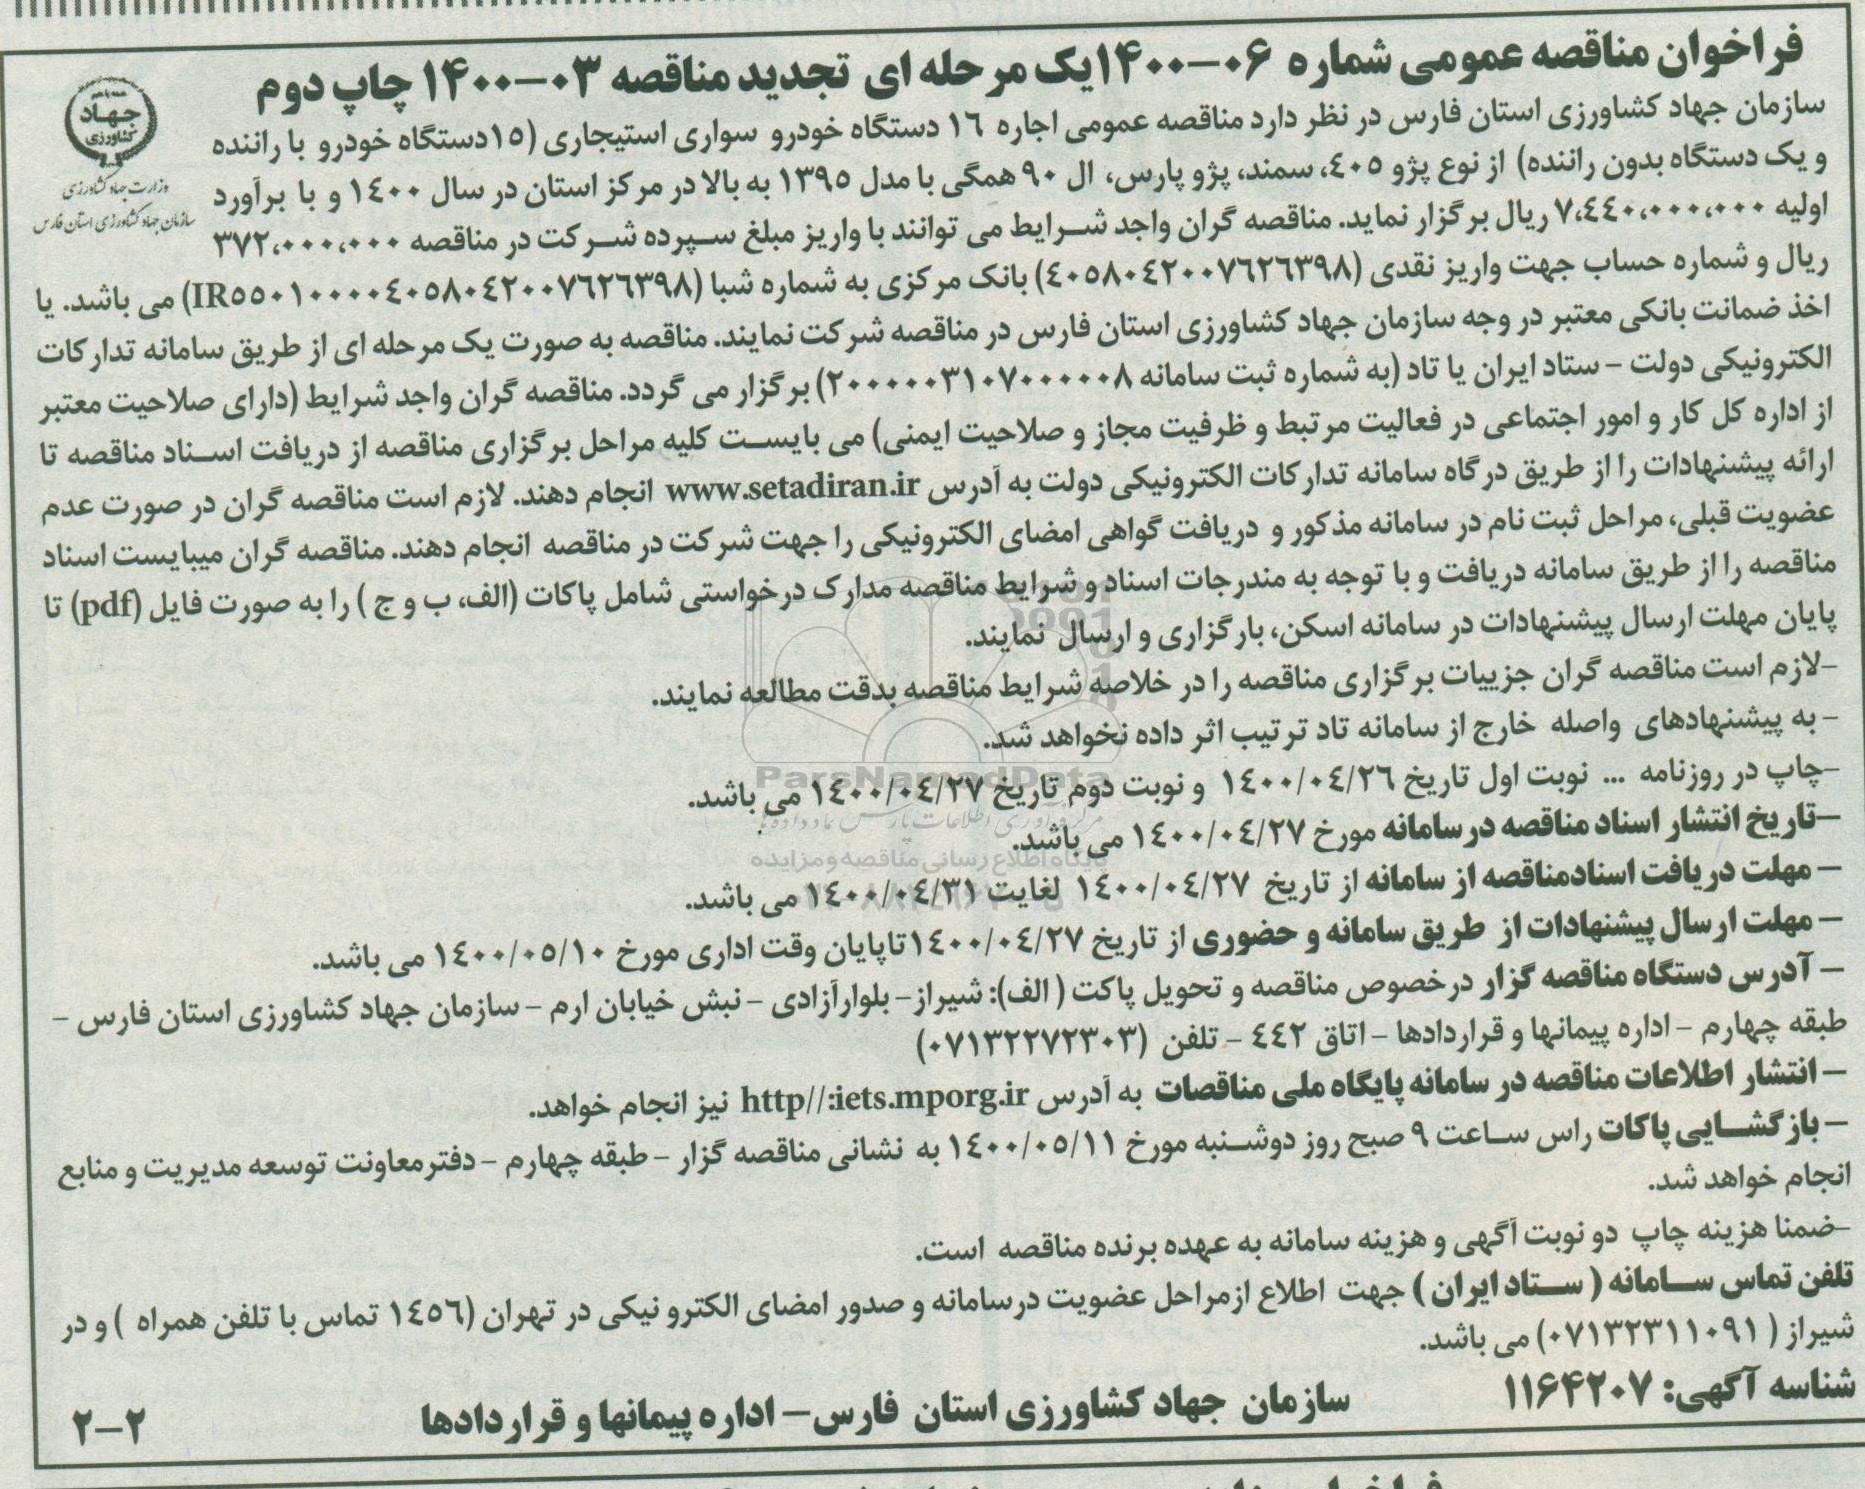 فراخوان مناقصه عمومی شماره ۰۶-۱۴۰۰یک مرحله ای تجدید مناقصه ۰۳-۱۴۰۰ چاپ دوم
جهاد
کشاورزی
وزارت جهاد کشاورزی
سازمان جهاد کشاورزی استان فارس
سازمان جهاد کشاورزی استان فارس در نظر دارد مناقصه عمومی اجاره ١٦ دستگاه خودرو سواری استیجاری (١٥دستگاه خودرو با راننده
و یک دستگاه بدون راننده) از نوع پژو ٤٠٥، سمند، پژو پارس، ال ٩٠ همگی با مدل ١٣٩٥ به بالا در مرکز استان در سال ١٤٠٠ و با برآورد
اولیه ٧،٤٤٠،٠٠٠،٠٠٠ ریال برگزار نماید. مناقصه گران واجد شرایط می توانند با واریز مبلغ سپرده شرکت در مناقصه ٣٧٢،٠٠٠،٠٠٠
ریال و شماره حساب جهت واریز نقدی (٤٠٥٨٠٤٢٠٠٧٦٢٦٣٩٨) بانک مرکزی به شماره شبا (IR٥٥٠١٠٠٠٠٤٠٥٨٠٤٢٠٠٧٦٢٦٣٩٨) می باشد. یا
اخذ ضمانت بانکی معتبر در وجه سازمان جهاد کشاورزی استان فارس در مناقصه شرکت نمایند. مناقصه به صورت یک مرحله ای از طریق سامانه تدارکات
الکترونیکی دولت - ستاد ایران یا تاد (به شماره ثبت سامانه ٢٠٠٠٠٠٣١٠٧٠٠٠٠٠٨) برگزار می گردد. مناقصه گران واجد شرایط (دارای صلاحیت معتبر
از اداره کل کار و امور اجتماعی در فعالیت مرتبط و ظرفیت مجاز و صلاحیت ایمنی) می بایست کلیه مراحل برگزاری مناقصه از دریافت اسناد مناقصه تا
ارائه پیشنهادات را از طریق درگاه سامانه تدارکات الکترونیکی دولت به آدرس www.setadiran.ir انجام دهند. لازم است مناقصه گران در صورت عدم
عضویت قبلی، مراحل ثبت نام در سامانه مذکور و دریافت گواهی امضای الکترونیکی را جهت شرکت در مناقصه انجام دهند. مناقصه گران میبایست اسناد
مناقصه را از طریق سامانه دریافت و با توجه به مندرجات اسناد و شرایط مناقصه مدارک درخواستی شامل پاکات (الف، ب و ج ) را به صورت فایل (pdf) تا
پایان مهلت ارسال پیشنهادات در سامانه اسکن، بارگزاری و ارسال نمایند.
-لازم است مناقصه گران جزییات برگزاری مناقصه را در خلاصه شرایط مناقصه بدقت مطالعه نمایند.
- به پیشنهادهای واصله خارج از سامانه تاد ترتیب اثر داده نخواهد شد.
-چاپ در روزنامه ... نوبت اول تاریخ ١٤٠٠/٠٤/٢٦ و نوبت دوم تاریخ ١٤٠٠/٠٤/٢٧ می باشد.
ParsNamadData
-تاریخ انتشار اسناد مناقصه درسامانه مورخ ١٤٠٠/٠٤/٢٧ می باشد.
پایگاه اطلاع رسانی مناقصه و مزایده
- مهلت دریافت اسنادمناقصه از سامانه از تاریخ ١٤٠٠/٠٤/٢٧ لغایت ١٤٠٠/٠٤/٣١ می باشد.
- مهلت ارسال پیشنهادات از طریق سامانه و حضوری از تاریخ ١٤٠٠/٠٤/٢٧تاپایان وقت اداری مورخ ١٤٠٠/٠٥/١٠ می باشد.
- آدرس دستگاه مناقصه گزار درخصوص مناقصه و تحویل پاکت ( الف): شیراز- بلوارآزادی - نبش خیابان ارم - سازمان جهاد کشاورزی استان فارس -
طبقه چهارم - اداره پیمانها و قراردادها - اتاق ٤٤٢ - تلفن (٠٧١٣٢٢٧٢٣٠٣)
- انتشار اطلاعات مناقصه در سامانه پایگاه ملی مناقصات به آدرس http//:iets.mporg.ir نیز انجام خواهد.
- بازگشایی پاکات راس ساعت ٩ صبح روز دوشنبه مورخ ١٤٠٠/٠٥/١١ به نشانی مناقصه گزار - طبقه چهارم - دفترمعاونت توسعه مدیریت و منابع
انجام خواهد شد.
-ضمنا هزینه چاپ دو نوبت آگهی و هزینه سامانه به عهده برنده مناقصه است.
تلفن تماس سامانه ( ستاد ایران ) جهت اطلاع ازمراحل عضویت درسامانه و صدور امضای الکترو نیکی در تهران (١٤٥٦ تماس با تلفن همراه ) و در
شیراز ( ٠٧١٣٢٣١١٠٩١) می باشد.
شناسه آگهی: ۱۱۶۴۲۰۷
سازمان جهاد کشاورزی استان فارس- اداره پیمانها و قراردادها
۲-۲